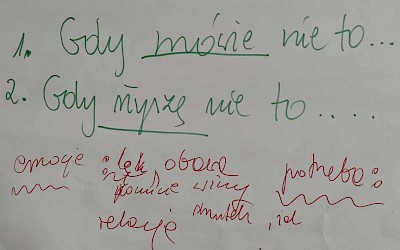 1. Gdy mówię nie to...
2. Gdy słyszę nie to.....
emoje : lęk, obawa potrzeba:
poczucie winy
relacje smutek,